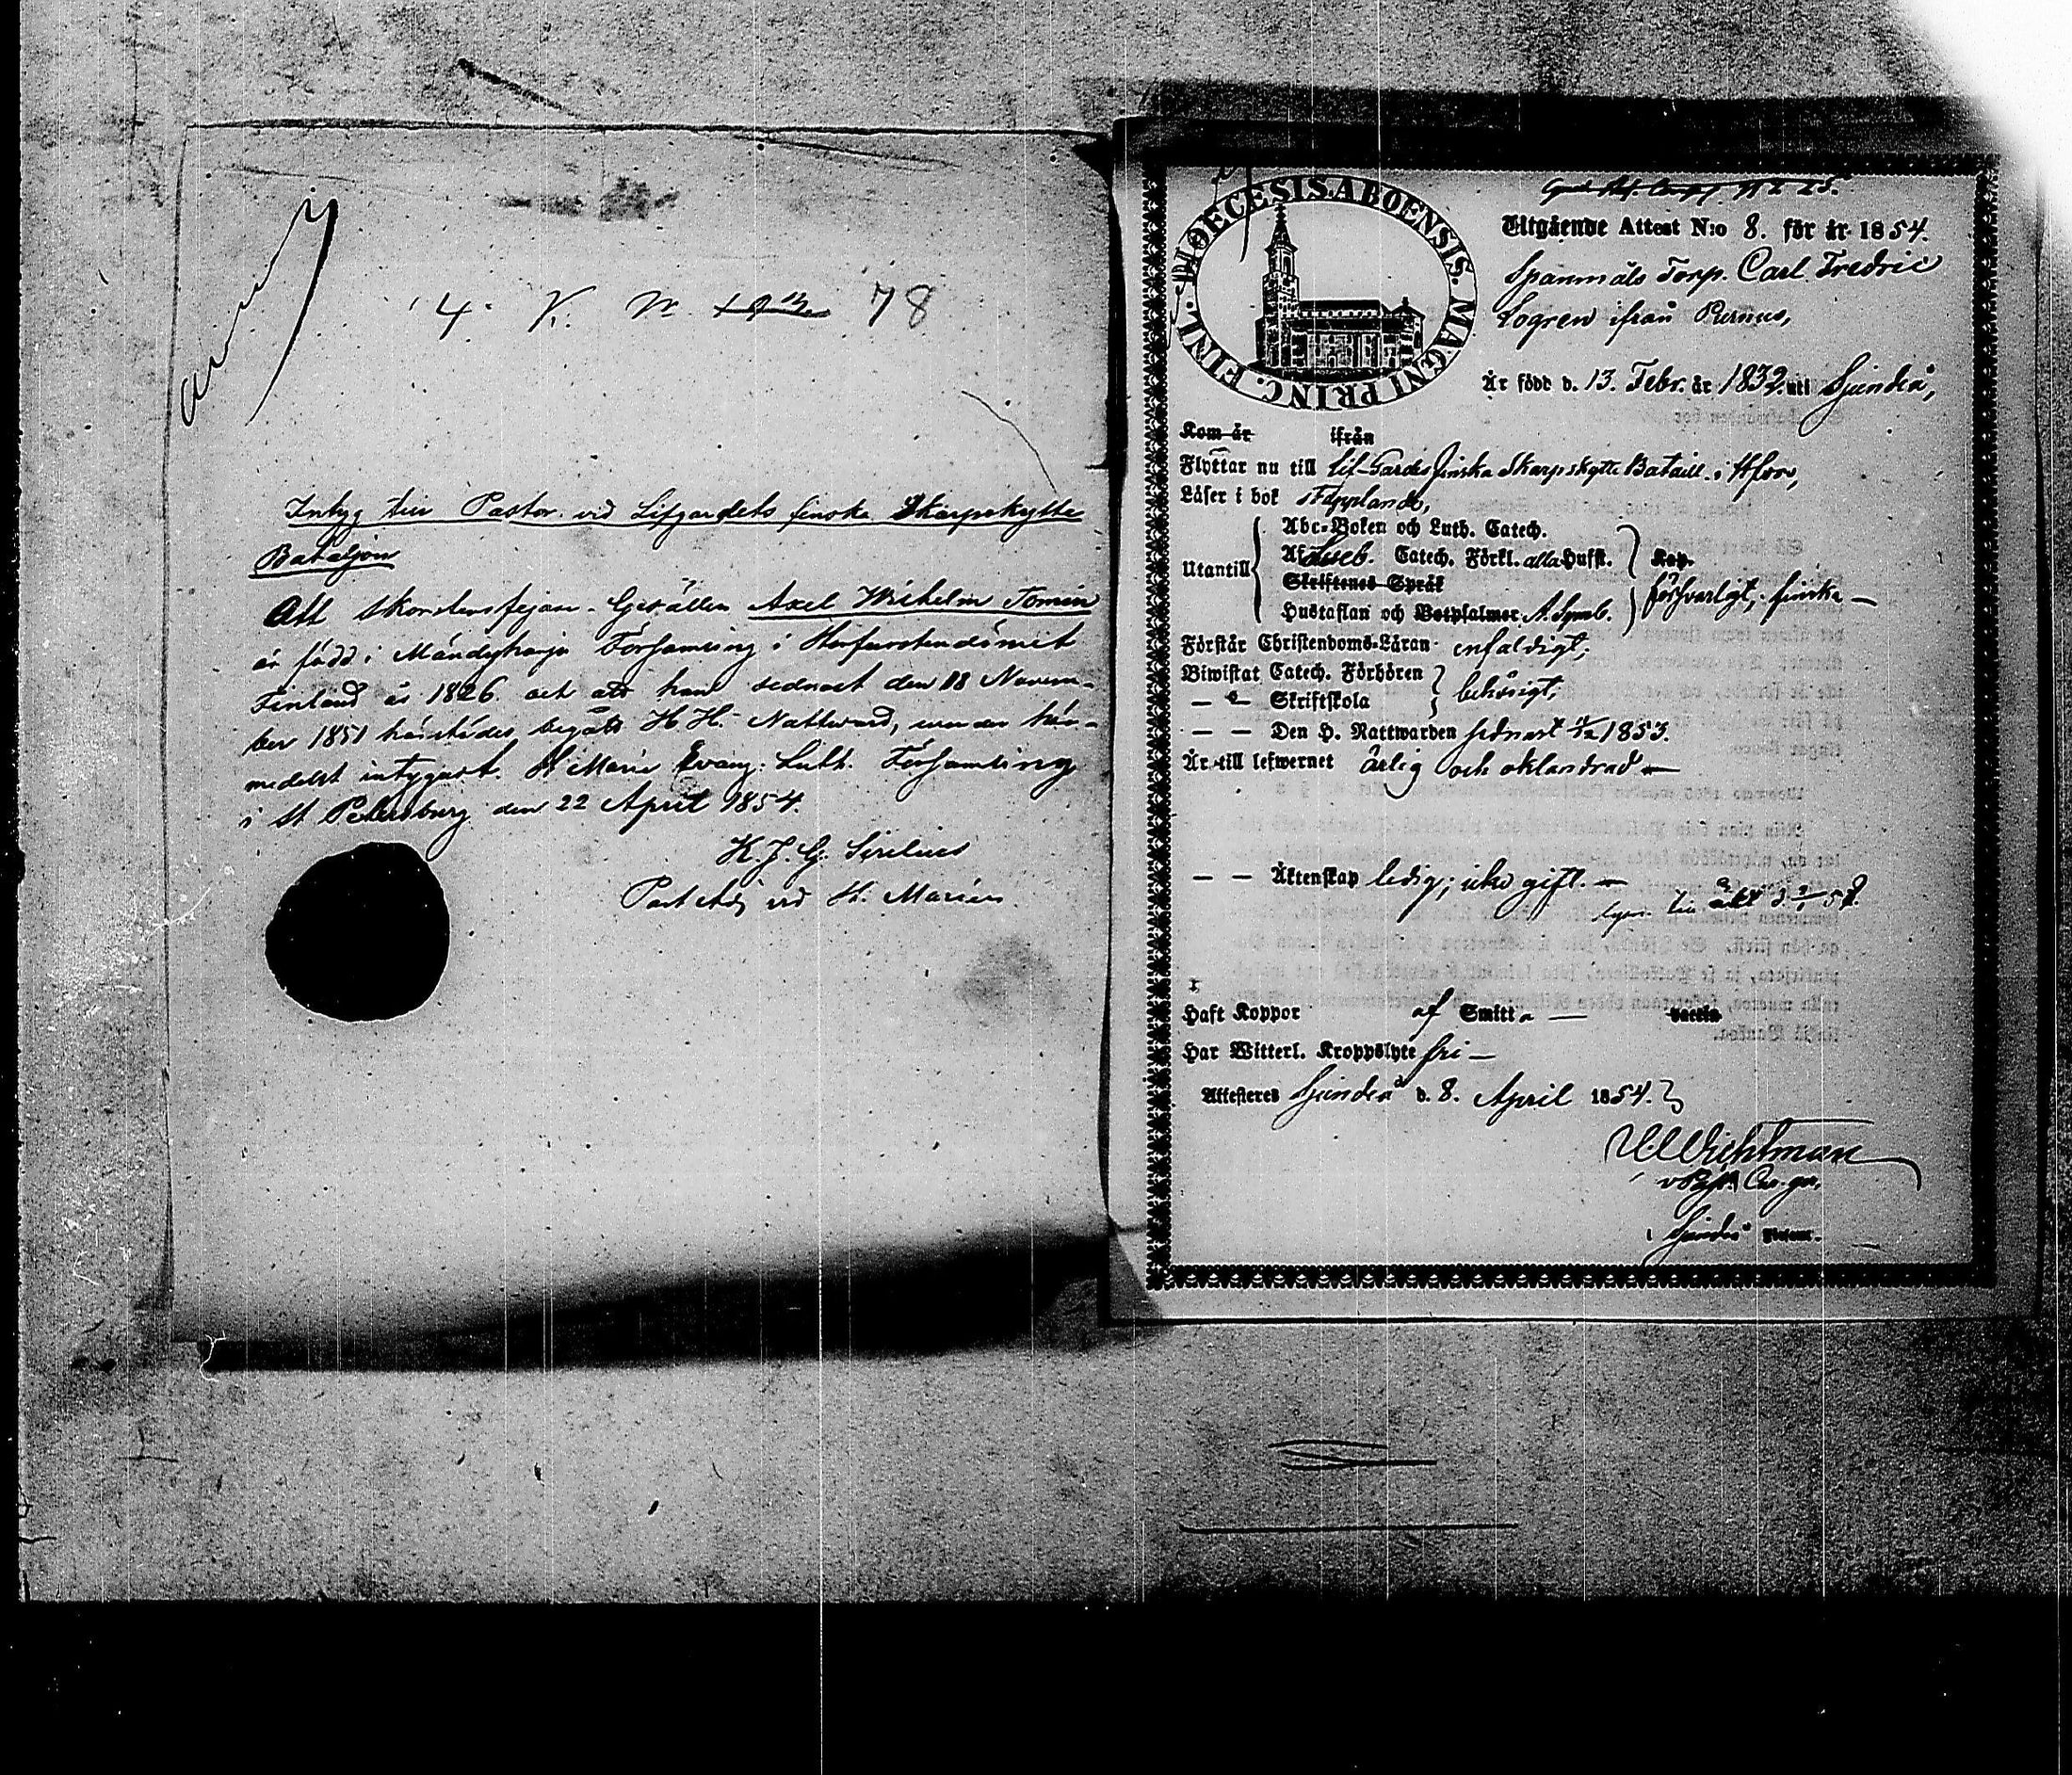 4. K. N. 78
Intyg till Pastor vid Lifgardets finska Skarpskytte
Bataljon
Att skorstensfejare-Gesällen Axel Wilhelm Tomin
är född i Mändyharju Församling i Storfurstendömet
Finland år 1826 och att han sednast den 18 Novem-
ber 1851 härstädes begått H. H. Nattward, warder här-
medelst intygadt. St Marie Evang. Luth. Församling
i St Petersburg den 22 April 1854.
K. J. G. Sirelius
Past Adj vid St. Marien
DIOECESIS ABOENSIS. MAGNI PRINC. FINL.
Utgående Attest N:o 8. för år 1854.
Spanmåls Torp. Carl Fredric
Logren ifrån Purnus,
Är född d. 13. Febr. år 1832 uti Sjundeå,
Kom år ifrån
Flyttar nu till Lif-Gardes finska Skarpskytte Bataill. i Hfors,
Läser i bok
Utantill
Abc-Boken och Luth. Catech.
Af Sveb. Catech. Förkl. alla Hufst.
Skriftenes Språk
Hustaflan och Botpsalmer A. Symb.
Kap.
försvarligt, finska —
Förstår Christendoms-Läran enfaldigt;
Biwistat Catech. Förhören
— — Skriftskola
behörigt;
— — Den H. Nattwarden sednast 1853.
Är till lefwernet ärlig och oklandrad —
— — Äktenskap ledig; icke gift. —
Haft Koppor af Smitta —
Har Witterl. Kroppslyte fri —
Attesteras Sjundeå d. 8. April 1854.
Wichtman
i Sjundeå